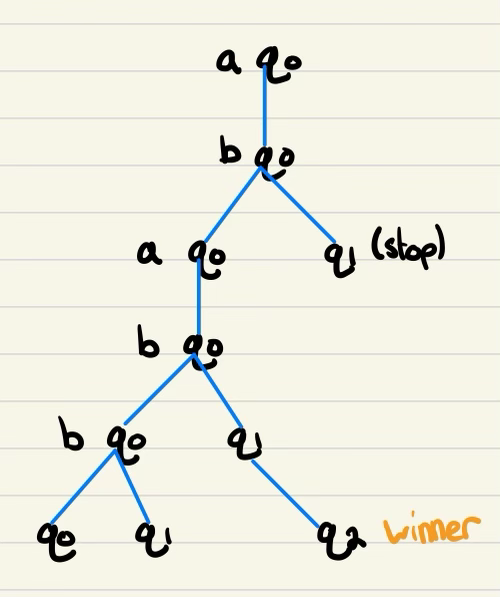 a q0
b q0
a q0 q1 (stop)
b q0
b q0 q1
q0 q1 q2 winner